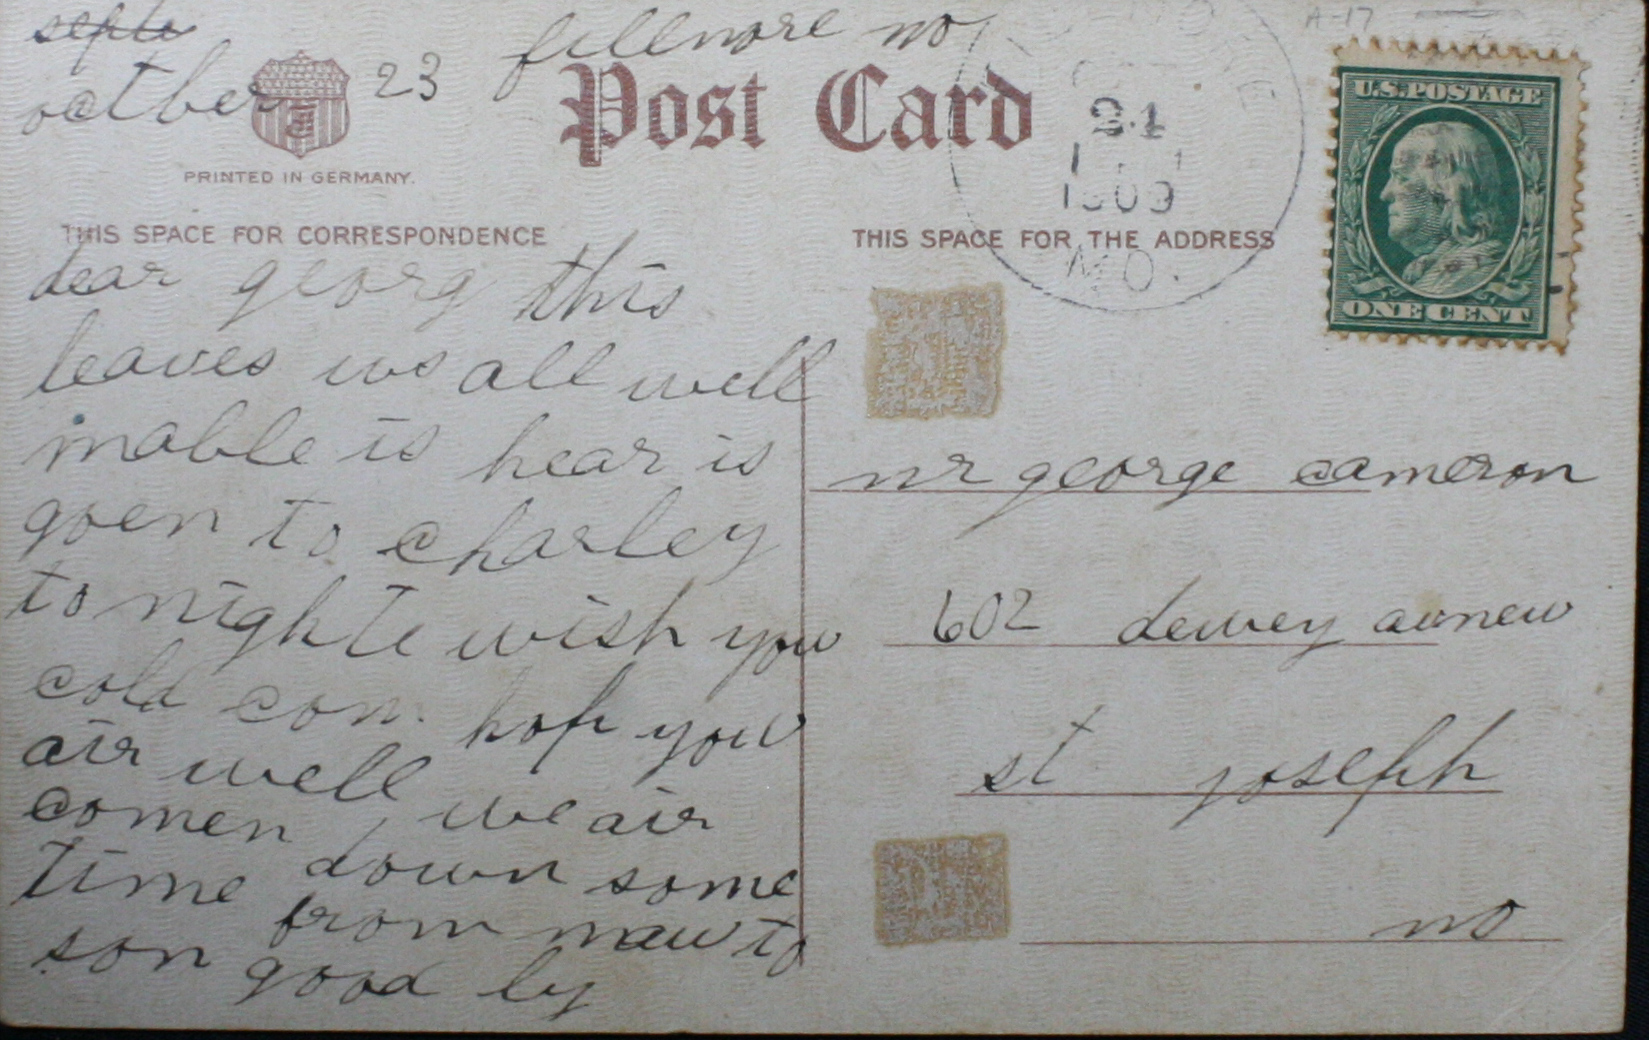 septe
octber 23 fillmore mo
A-17
PRINTED IN GERMANY.
Post Card
24
1909
MO.
U.S. POSTAGE
ONE CENT
THIS SPACE FOR CORRESPONDENCE
THIS SPACE FOR THE ADDRESS
dear georg this
leaves us all well
mable is hear is
goen to charley
to nighte wish you
cold com. hope you
air well we air
comen down some
time from maw to
son good by
mr george cameron
602 dewey avnew
st joseph
mo